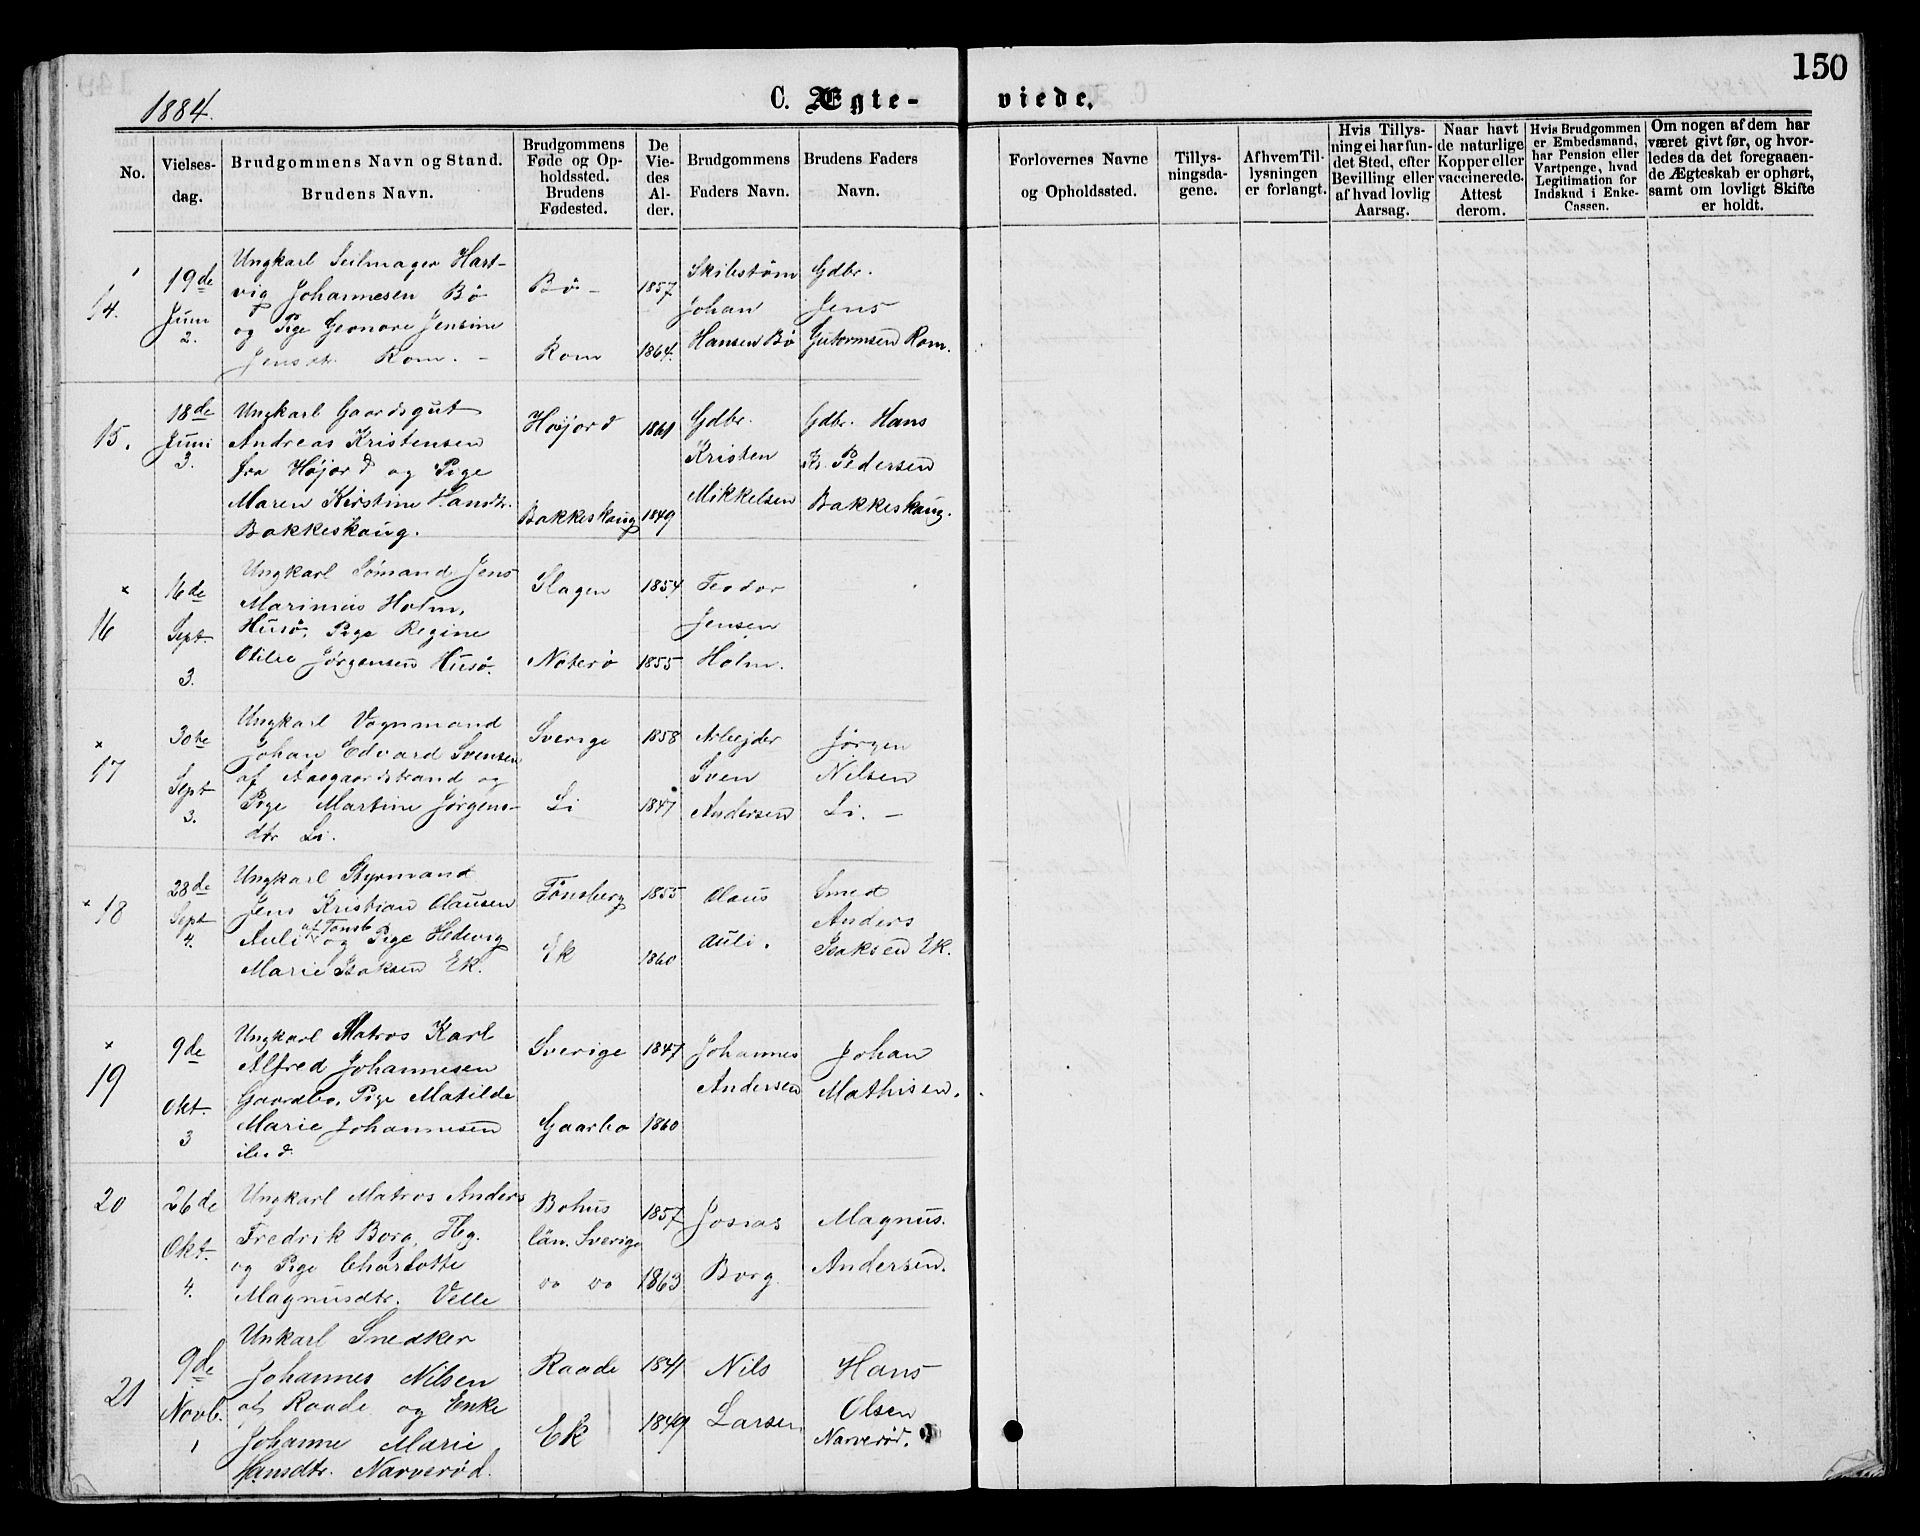 150
1884.
C. Ægte- viede,
No.
Vielses-
dag.
Brudgommens Navn og Stand.
Brudens Navn.
Brudgommens
Føde og Op-
holdssted.
Brudens
Fødested.
De
Vie-
des
Al-
der.
Brudgommens
Faders Navn.
Brudens Faders
Navn.
Forlovernes Navne
og Opholdssted.
Tillys-
ningsda-
gene.
Af hvem Til-
lysningen
er forlangt.
Hvis Tillys-
ning ei har fun-
det Sted, efter
Bevilling eller
af hvad lovlig
Aarsag.
Naar havt
de naturlige
Kopper eller
vaccinerede.
Attest
derom.
Hvis Brudgommen
er Embedsmand,
har Pension eller
Vartpenge, hvad
Legitimation for
Indskud i Enke-
Cassen.
Om nogen af dem har
været givt før, og hvor-
ledes da det foregaaen-
de Ægteskab er ophørt,
samt om lovligt Skifte
er holdt.
14.
19de
Juni
2.
Ungkarl Seilmager Hart-
vig Johannesen Bø
og Pige Jensine
Jensdt. Rom. -
Bø -
Rom
1857
1864.
Johan
Hansen Bø
Gdbr.
Jens
Gutormsen Rom.
15.
18de
Juni
3.
Ungkarl Gaardsgut
Andreas Kristensen
fra Højord og Pige
Maren Kirstine Hansdtr.
Bakkeskaug.
Højord
Bakkeskaug
1861
1849
Gdbr.
Kristen
Mikkelsen
Gdbr. Hans
Kr. Pedersen
Bakkeskaug.
16
16de
Sept.
3.
Ungkarl Sømand Jens
Marinius Holm,
Husø, Pige Regine
Otilie Jørgensen Husø.
Slagen
Noterø
1854
1855
Teodor
Jensen
Holm.
17
30te
Sept
3.
Ungkarl Vognmand
Johan Edvard Svensen
af Aasgaardstrand og
Pige Martine Jørgens-
dtr Li.
Sverige
Li
1858
1847
Arbejder
Sven
Andersen
Jørgen
Nilsen
Li. -
18
28de
Sept
4.
Ungkarl Styrmand
Jens Kristian Olausen
Auli af Tønsb og Pige Hedevig
Marie Isaksen Ek.
Tønsberg
Ek
1855
1860
Olaus
Auli.
Smed
Anders
Isaksen Ek.
19
9de
Okt.
3
Ungkarl Matros Karl
Alfred Johannesen
Gaardbo, Pige Matilde
Marie Johannesen
ibid.
Sverige
Gaarbo
1847
1860
Johannes
Andersen
Johan
Mathisen.
20
26de
Okt.
4.
Ungkarl Matros Anders
Fredrik Borg, Tbg.
og Pige Charlotte
Magnusdtr. Velle
Bohus
län. Sverige
1857
1863
Josias
Borg
Magnus.
Andersen.
21
9de
Novb.
1
Unkarl Snedker
Johannes Nilsen
af Raade og Enke
Johanne Marie
Hansdtr. Narverød.
Raade
Ek
1841
1849
Nils
Larsen
Hans
Olsen
Narverød.